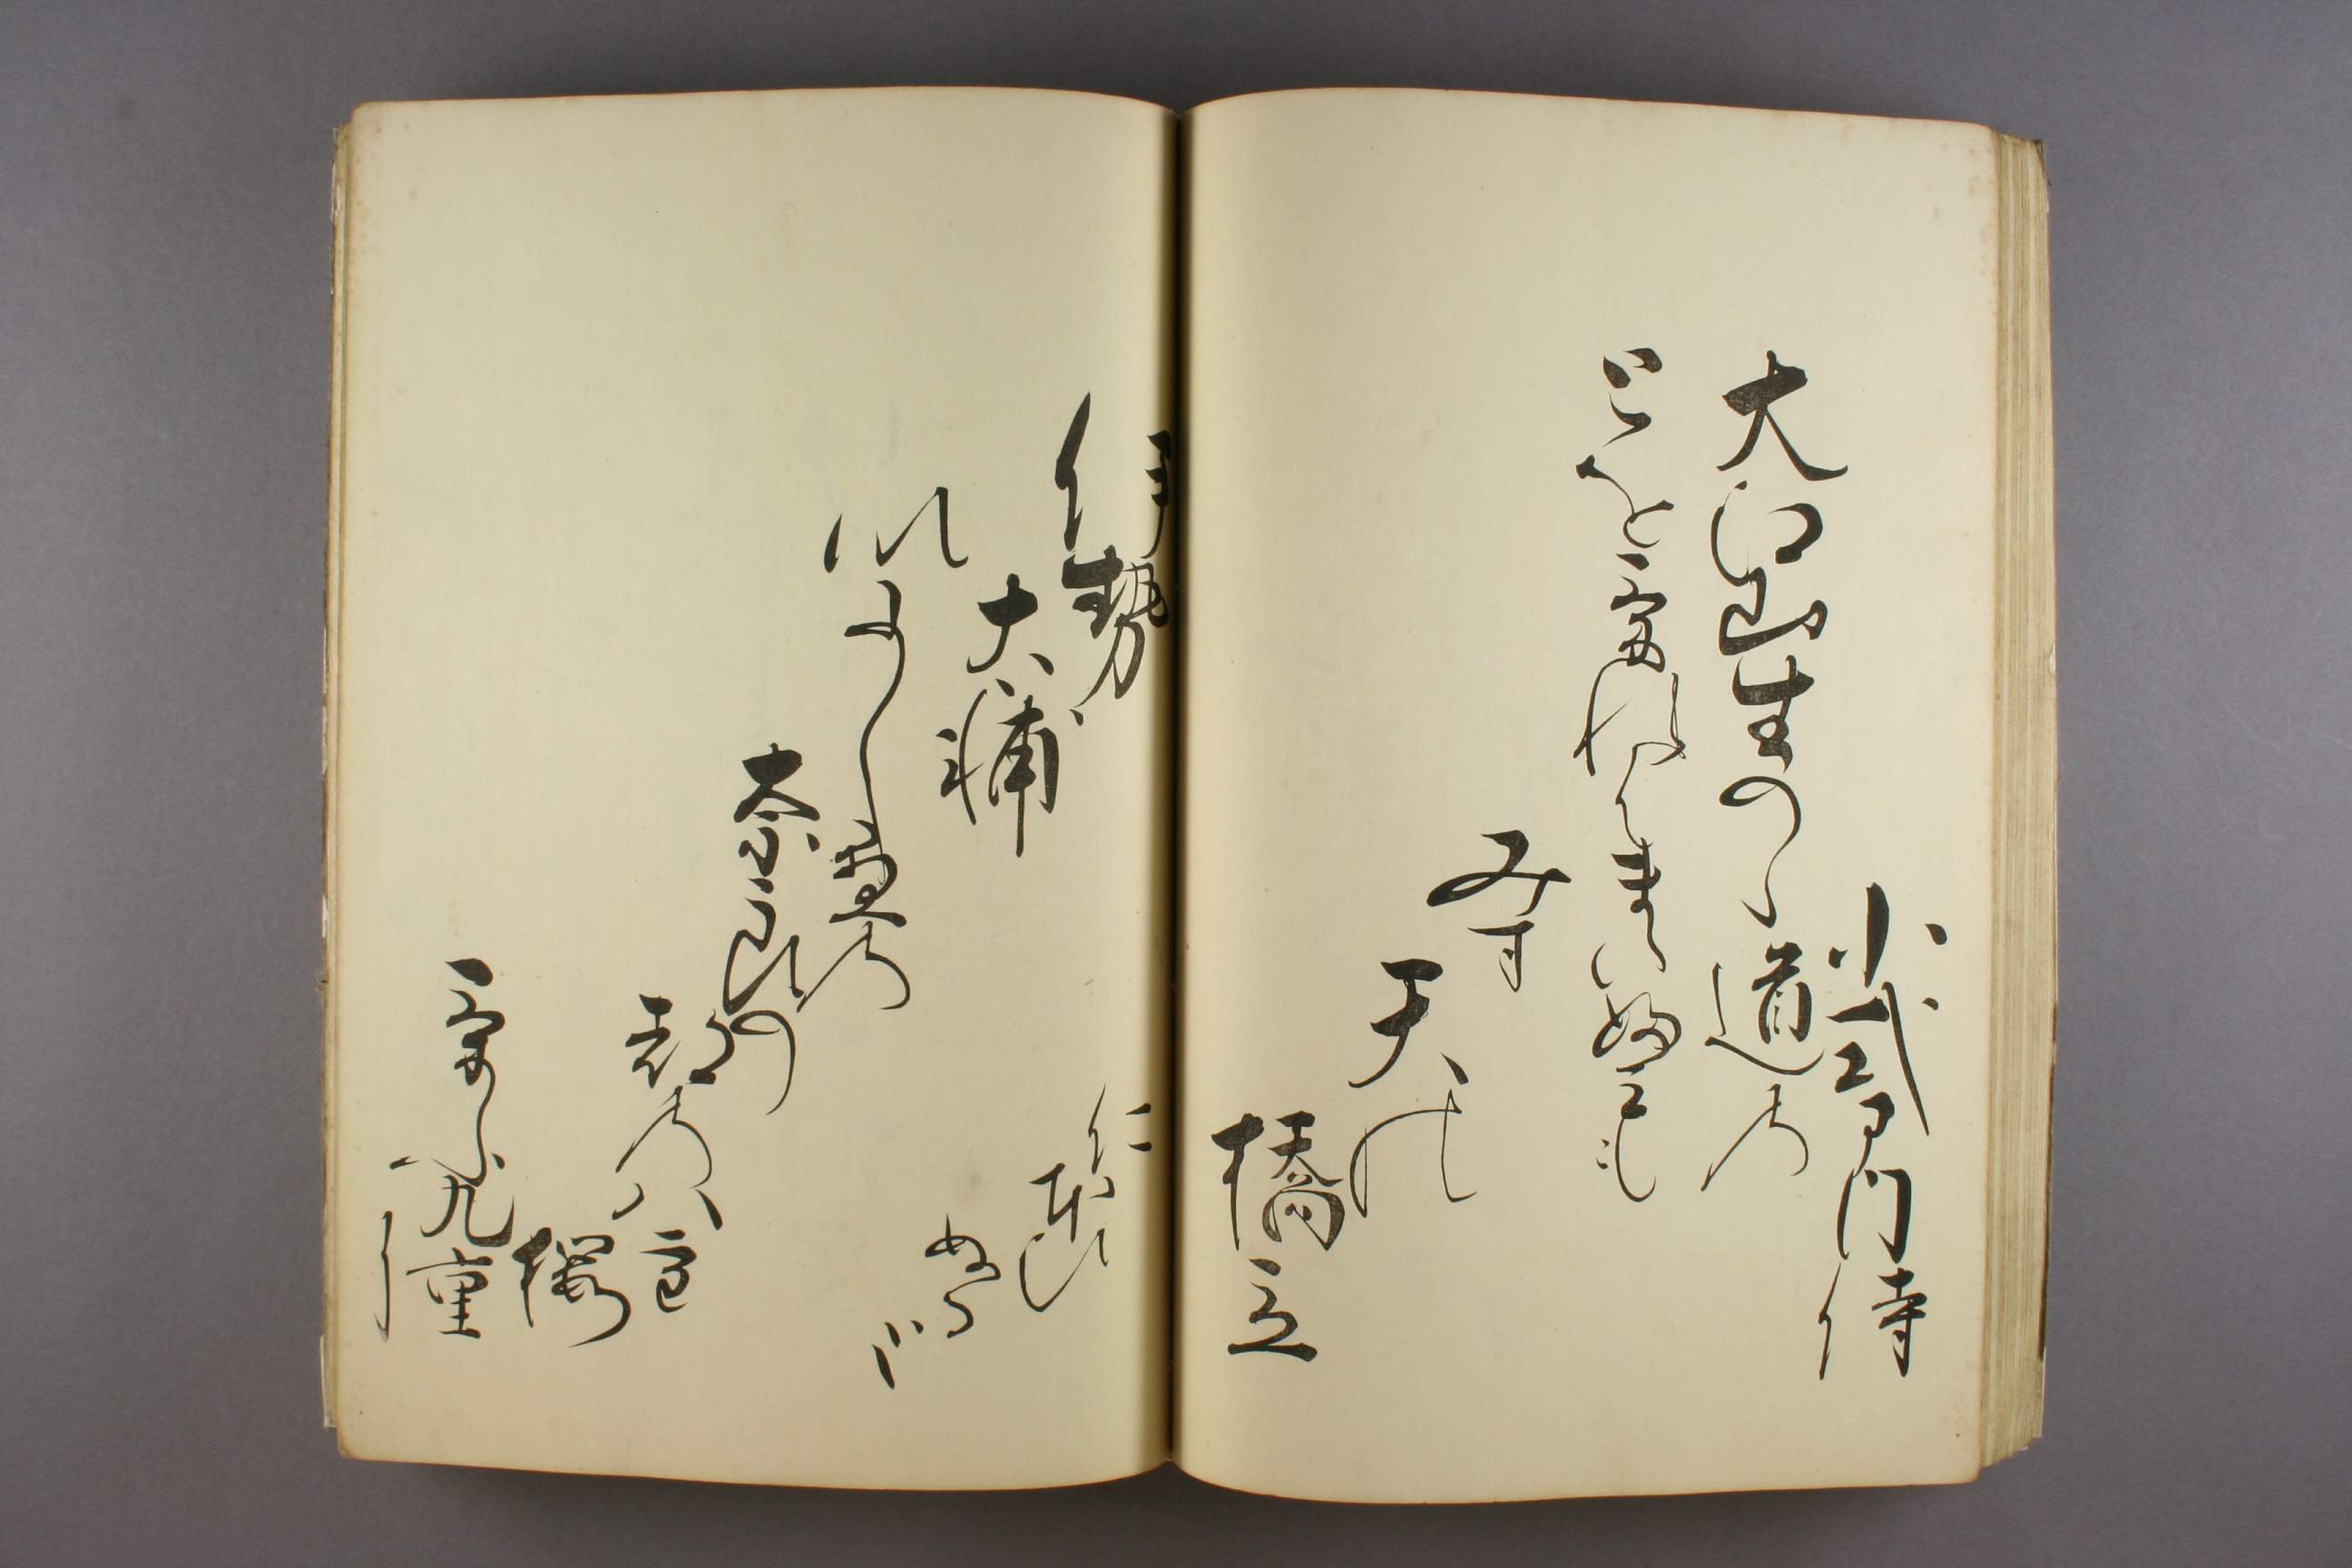 小式部内侍
大江山生のゝ道の
とをけれはまたふみも
みす
天の
橋立
伊勢
大輔
いにしへの
奈良の
都の八重
桜
けふ九重
に
にほひ
ぬる